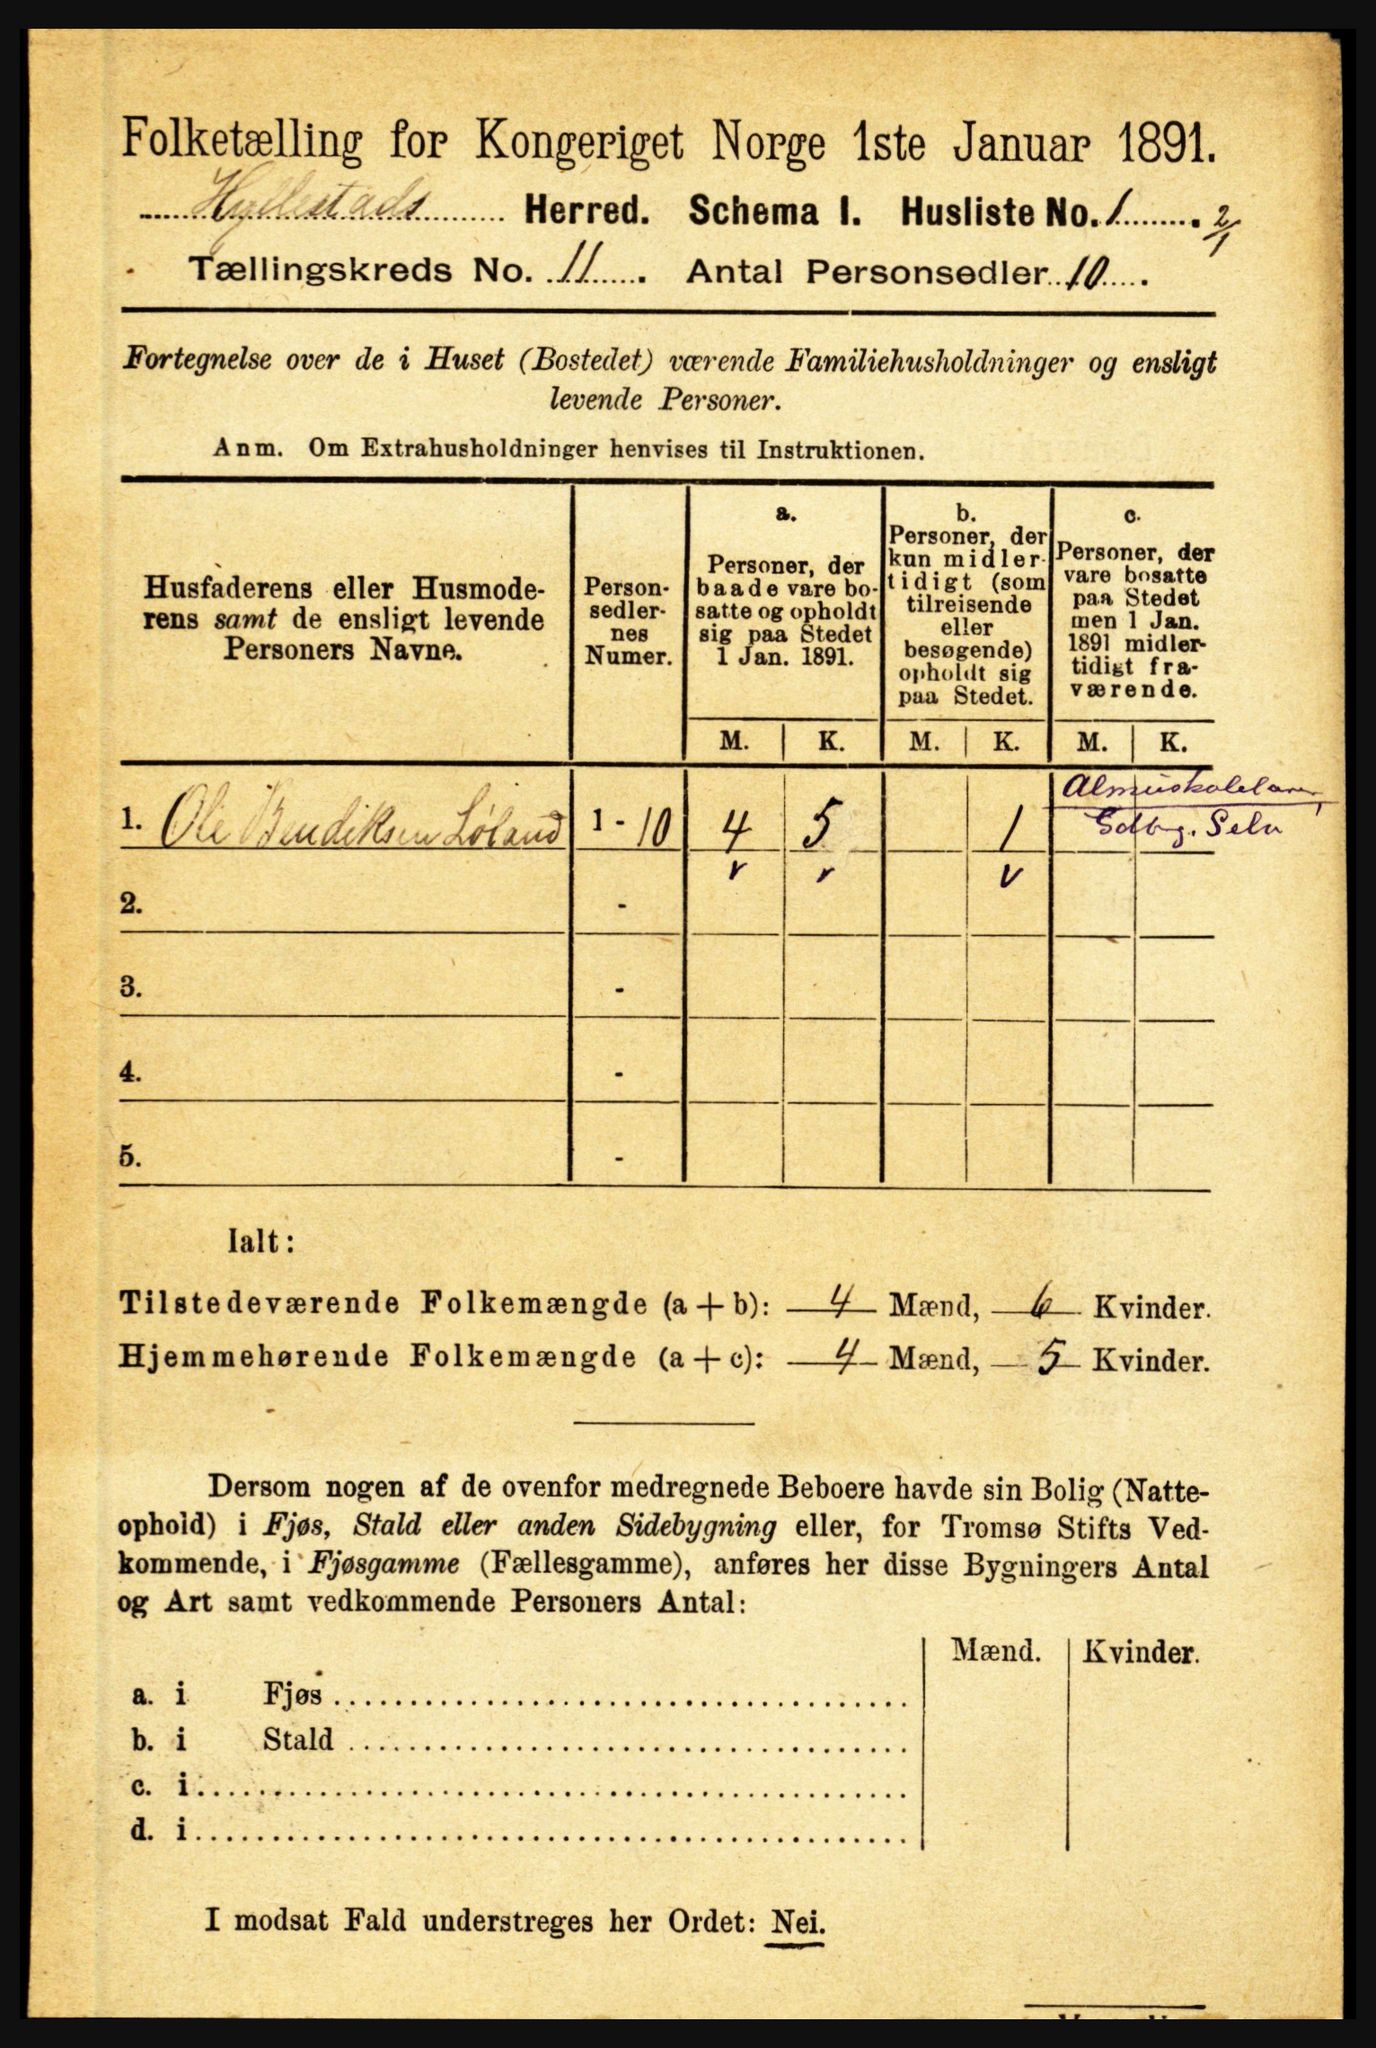 Folketælling for Kongeriget Norge 1ste Januar 1891.
Hyllestads Herred. Schema I. Husliste No. 1. 2/1
Tællingskreds No. 11. Antal Personsedler 10.
Fortegnelse over de i Huset (Bostedet) værende Familiehusholdninger og ensligt
levende Personer.
Anm. Om Extrahusholdninger henvises til Instruktionen.
Husfaderens eller Husmode-
rens samt de ensligt levende
Personers Navne.
Person-
sedler-
nes
Numer.
a.
Personer, der
baade vare bo-
satte og opholdt
sig paa Stedet
1 Jan. 1891.
b.
Personer, der
kun midler-
tidigt (som
tilreisende
eller
besøgende)
opholdt sig
paa Stedet.
c.
Personer, der
vare bosatte
paa Stedet
men 1 Jan.
1891 midler-
tidigt fra-
værende.
M. K. M. K. M. K.
1. Ole Bendiksen Løland 1 - 10 4 5 1
v v v
2. -
3. -
4. -
5. -
Ialt:
Tilstedeværende Folkemængde (a + b): 4 Mænd, 6 Kvinder.
Hjemmehørende Folkemængde (a + c): 4 Mænd, 5 Kvinder.
Dersom nogen af de ovenfor medregnede Beboere havde sin Bolig (Natte-
ophold) i Fjøs, Stald eller anden Sidebygning eller, for Tromsø Stifts Ved-
kommende, i Fjøsgamme (Fællesgamme), anføres her disse Bygningers Antal
og Art samt vedkommende Personers Antal:
Mænd. Kvinder.
a. i Fjøs
b. i Stald
c. i
d. i
I modsat Fald understreges her Ordet: Nei.